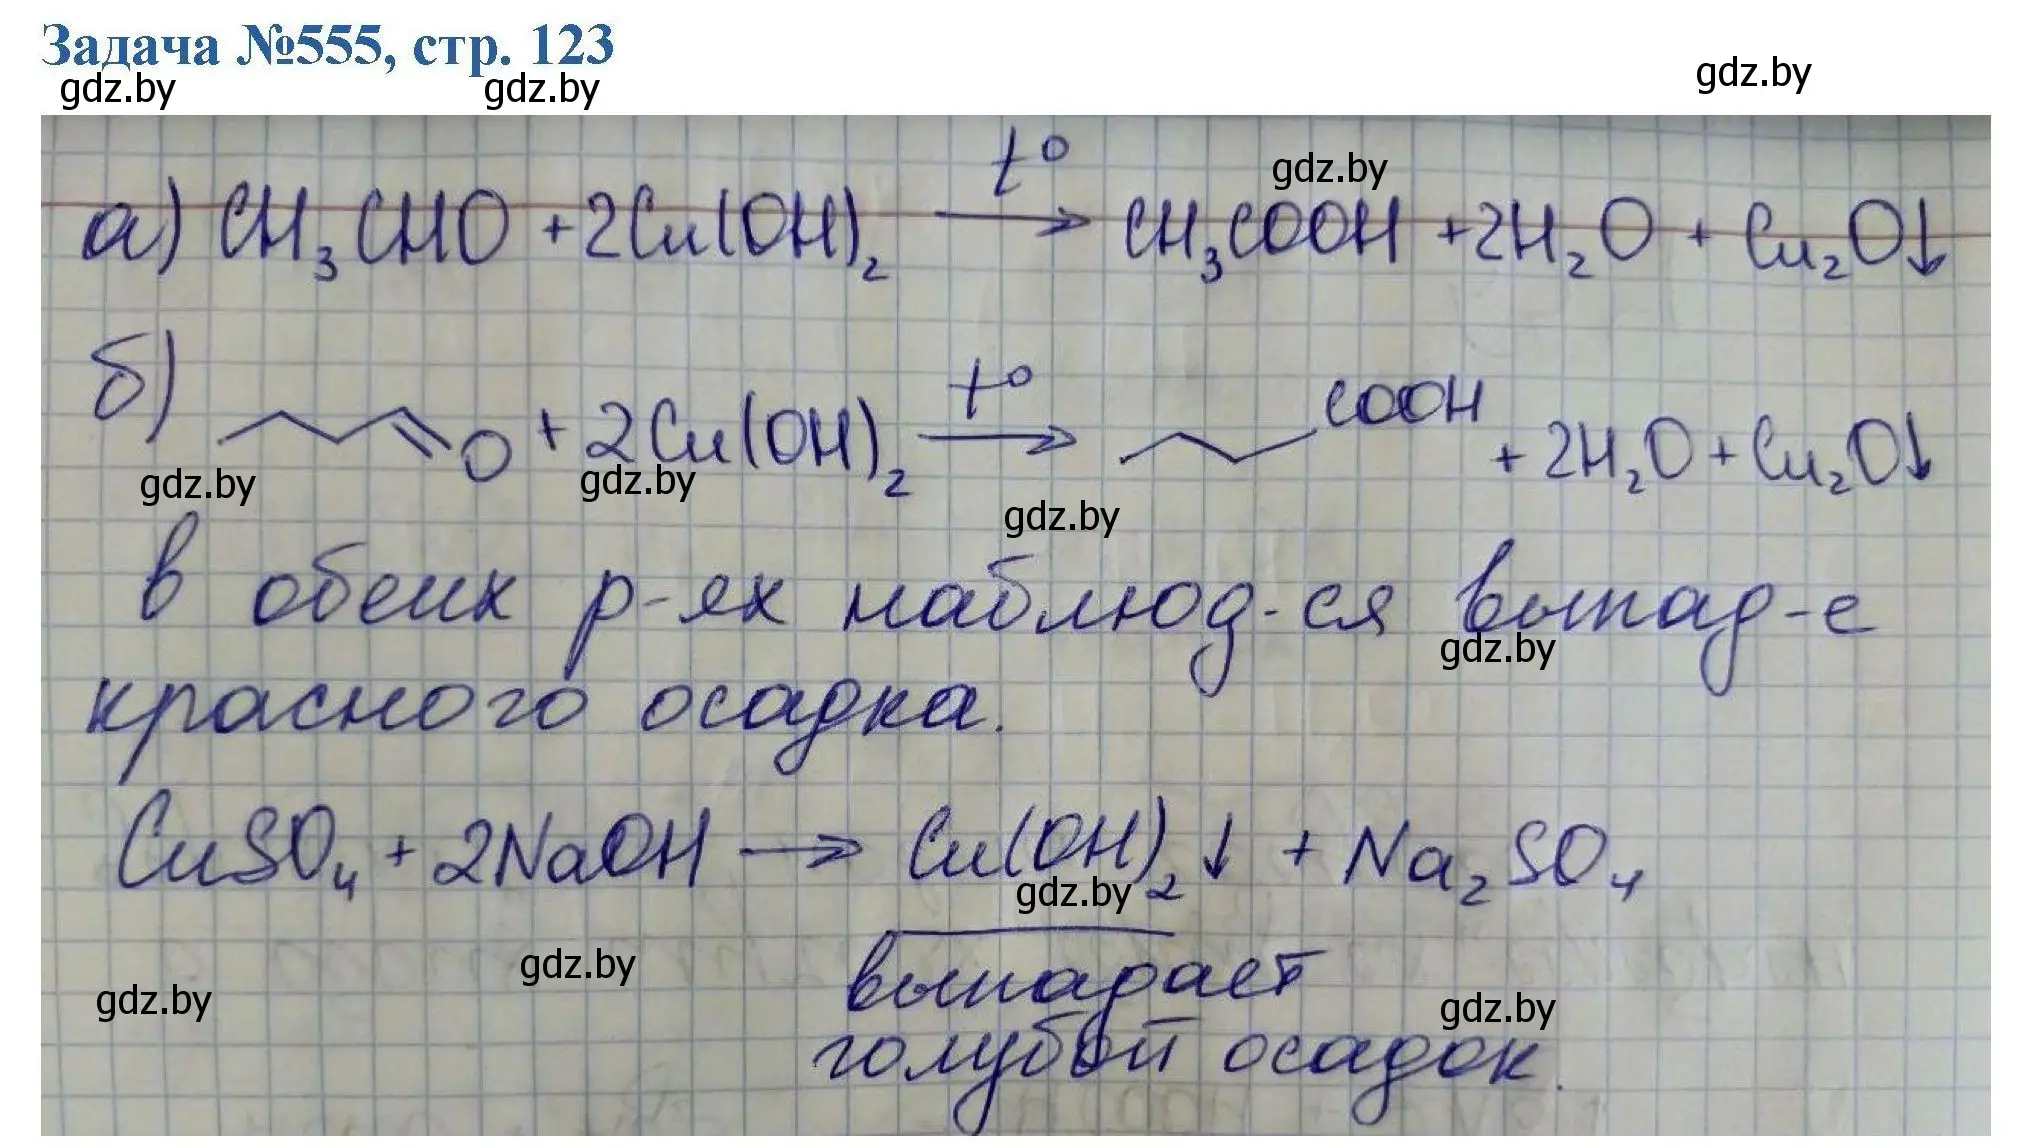 Задача №555, стр. 123
gdz.by gdz.by gdz.by
а) CH₃CHO + 2Cu(OH)₂ →(t°) CH₃COOH + 2H₂O + Cu₂O↓
gdz.by
б) O + 2Cu(OH)₂ →(t°) COOH + 2H₂O + Cu₂O↓
gdz.by gdz.by gdz.by
в обеих р-ях наблюд-ся выпад-е
gdz.by
красного осадка.
CuSO₄ + 2NaOH → Cu(OH)₂↓ + Na₂SO₄
gdz.by
выпадает
gdz.by gdz.by gdz.by
голубой осадок.